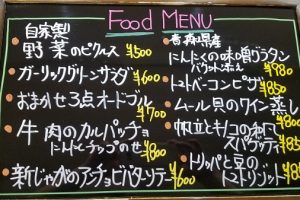 Food MENU
自家製
野菜のピクルス ¥500
ガーリックグリーンサラダ ¥600
おまかせ3点オードブル
¥700
牛肉のカルパッチョ
にんにくチップのせ ¥800
新じゃがのアンチョビバターソテー ¥600
青森県産
にんにくの味噌グラタン
バケット添え ¥980
トマトベーコンピザ ¥850
ムール貝のワイン蒸し
¥800
帆立とキノコの和風
スパゲッティ ¥85
トリッパと豆の
トマトリゾット ¥85